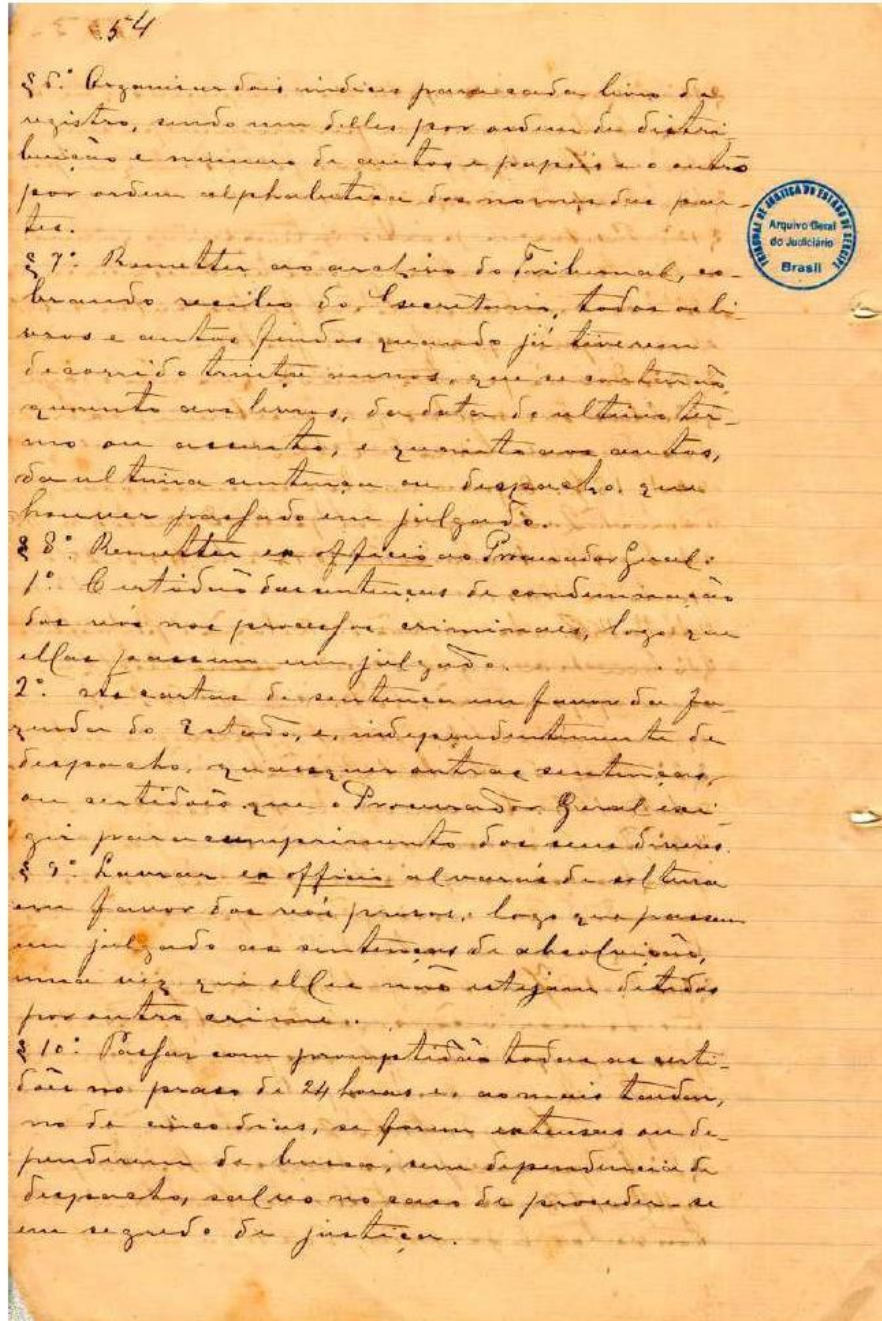 54
§ 6º Organisar dois indices para cada livro de
registro, sendo um delles por ordem de distri-
buição e numero de autos e papeis e o outro
por ordem alphabetica dos nomes das par-
tes.
§ 7º Remetter ao archivo do Tribunal, co-
brando recibo do Secretario, todos os li-
vros e autos findos quando já tiverem
decorrido trinta annos, que se contarão,
quanto aos livros, da data do ultimo ter-
mo ou assento, e quanto aos autos,
da ultima sentença ou despacho que
houver passado em julgado.
§ 8º Remetter ex officio ao Procurador Geral:
1º Certidão das sentenças de condemnação
dos réos nos processos criminaes, logo que
ellas passem em julgado.
2º As cartas de sentença em favor da fa-
zenda do Estado, e, independentemente de
despacho, quaesquer outras sentenças,
ou certidões que o Procurador Geral exi-
gir para cumprimento dos seus deveres.
§ 9º Lavrar ex officio alvarás de soltura
em favor dos réos presos, logo que passem
em julgado as sentenças de absolvição,
uma vez que elles não estejam detidos
por outro crime.
§ 10º Passar com promptidão todas as certi-
dões no praso de 24 horas e, ao mais tardar,
no de cinco dias, se forem extensas ou de-
penderem de busca, sem dependencia de
despacho, salvo no caso de proceder-se
em segredo de justiça.
TRIBUNAL DE JUSTIÇA DO ESTADO DE SERGIPE
Arquivo Geral
do Judiciário
Brasil